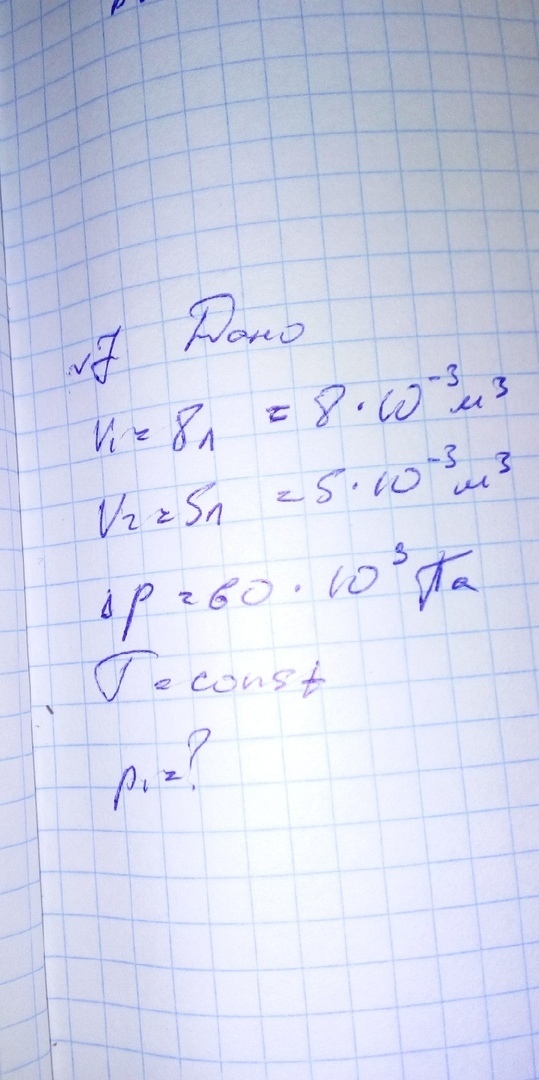 √7 Дано
V₁ = 8л = 8 · 10⁻³ м³
V₂ = 5л = 5 · 10⁻³ м³
Δp = 60 · 10³ Па
T = const
p₁ = ?